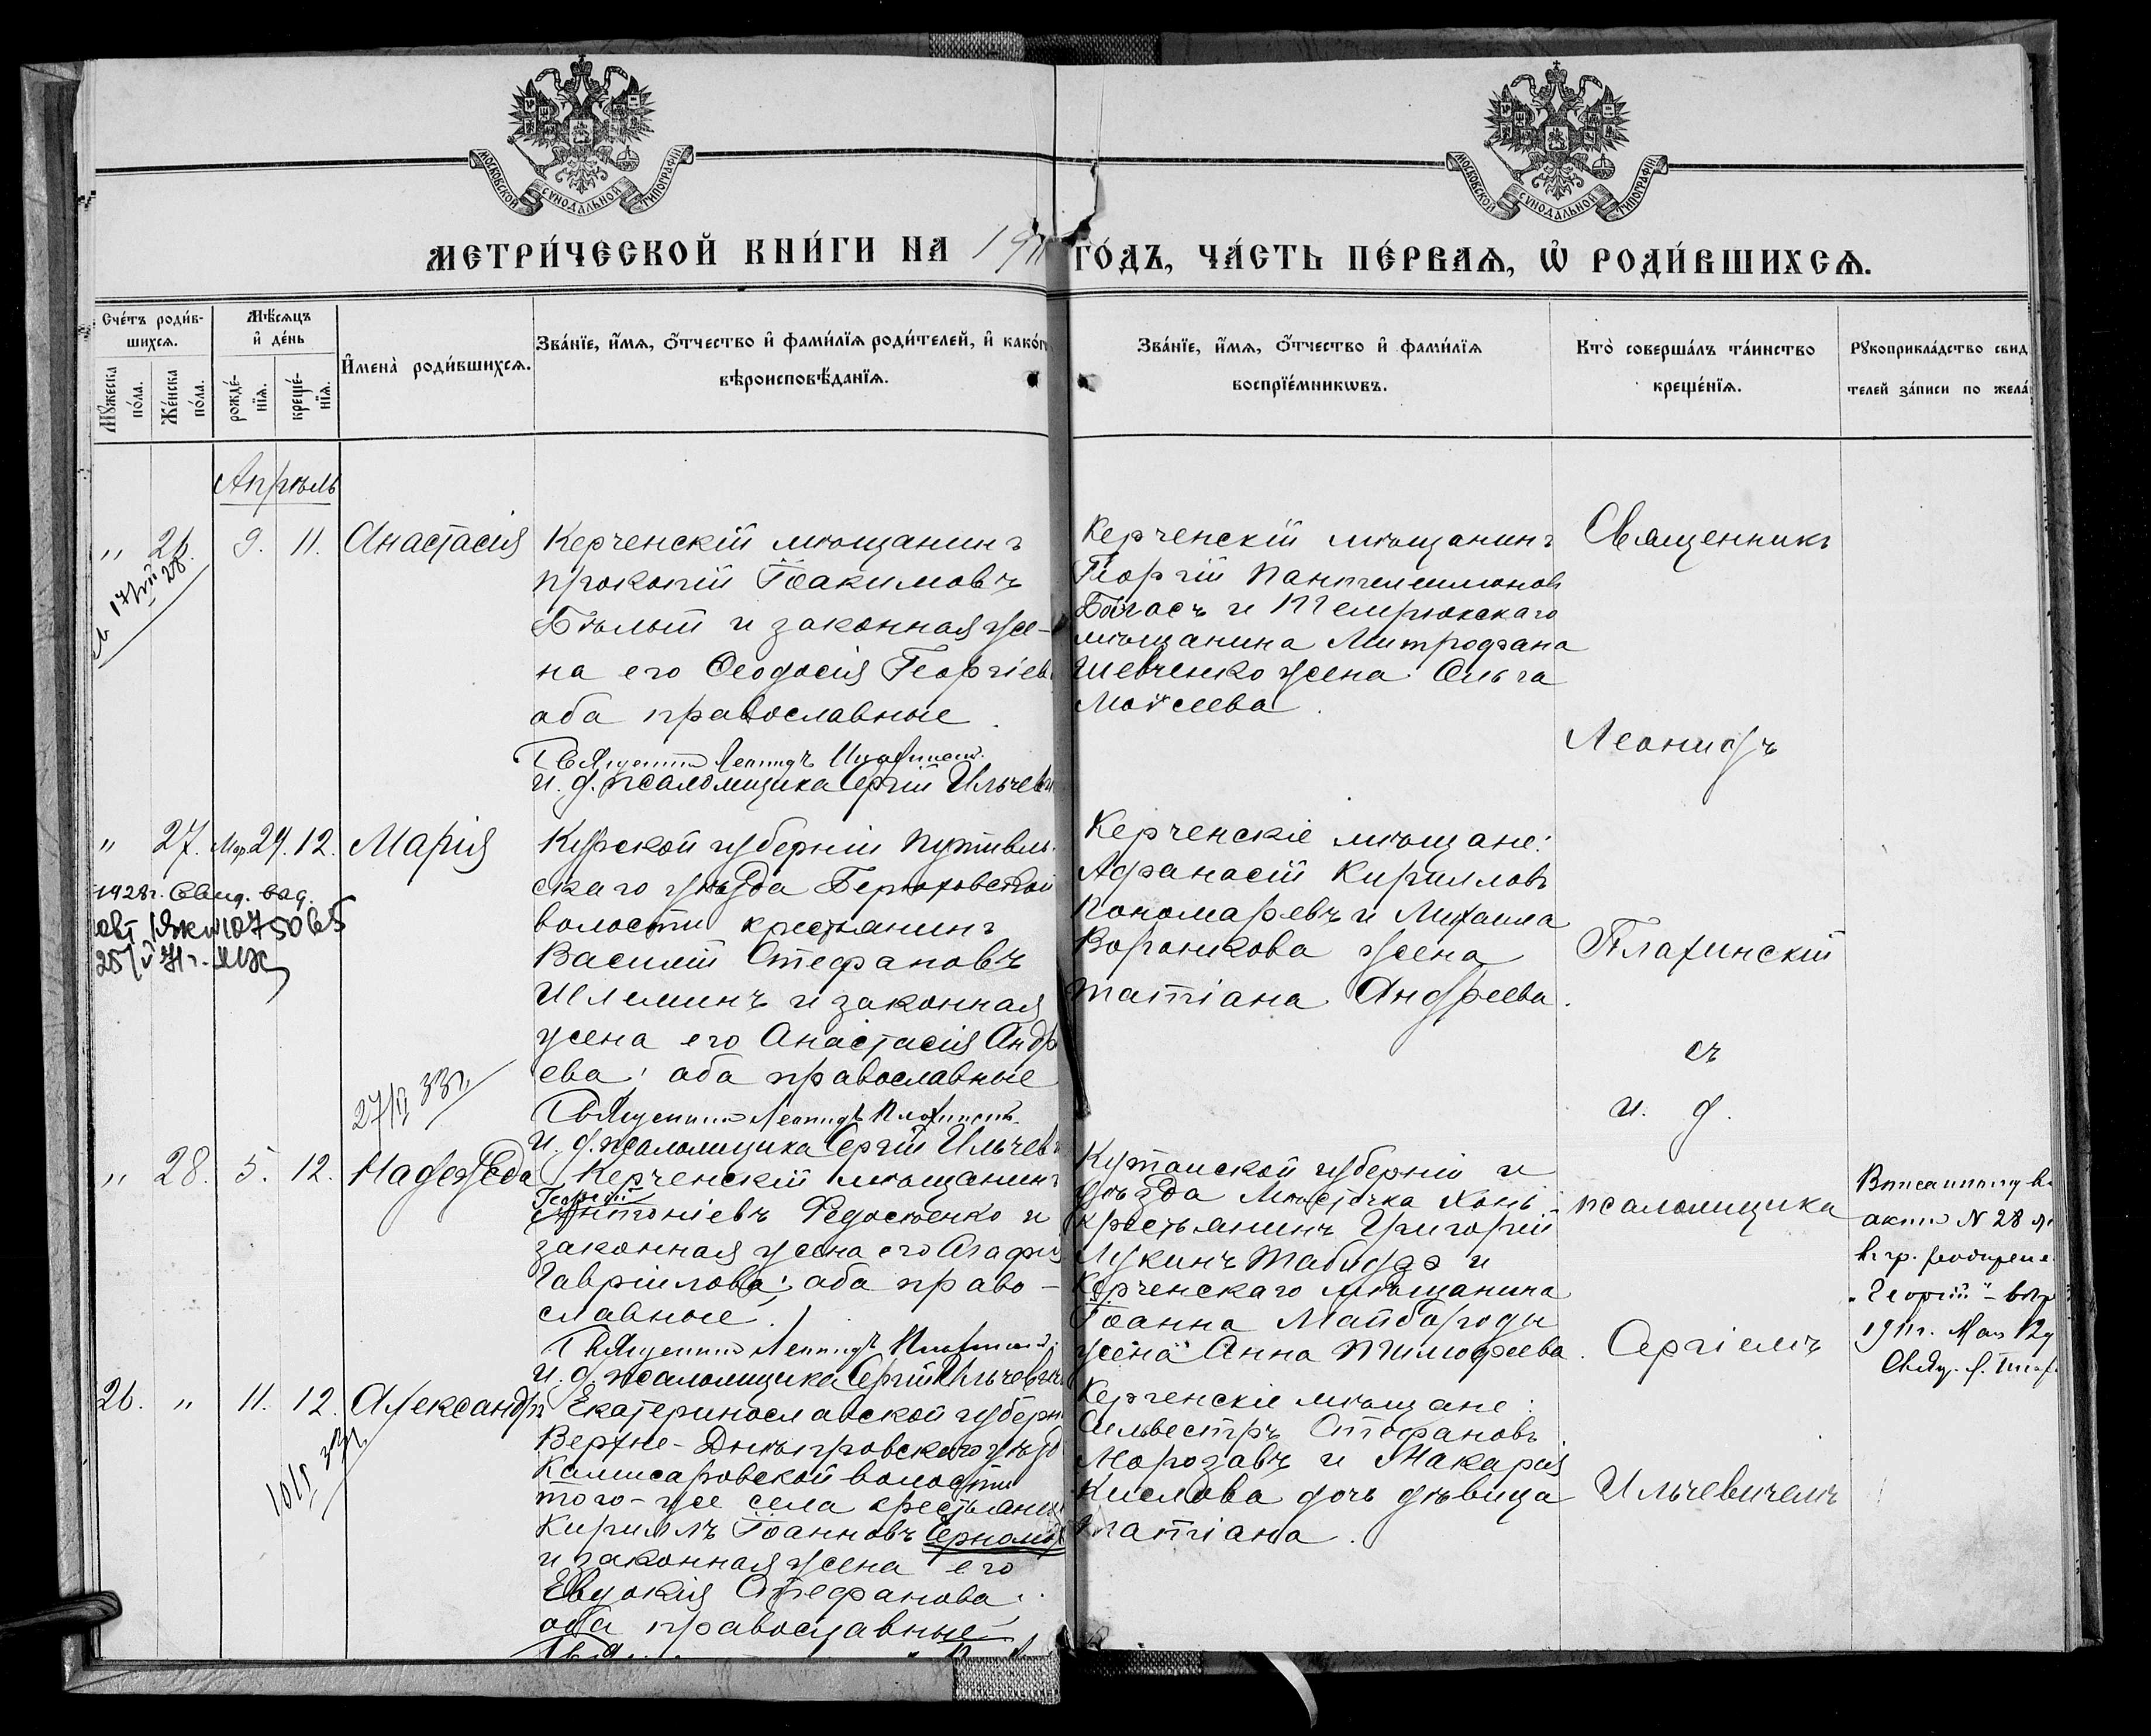 МОСКОВСКОЙ СѴНОДАЛЬНОЙ ТИПОГРАФІИ
МОСКОВСКОЙ СѴНОДАЛЬНОЙ ТИПОГРАФІИ
МЕТРИ́ЧЕСКОЙ КНИ́ГИ НА 1911 ГО́ДЪ, ЧА́СТЬ ПЕ́РВАѦ, Ѡ҆ РОДИ́ВШИХСѦ.
Сче́тъ роди́в-
шихсѧ.
Мꙋ́жеска по́ла.
Же́нска по́ла.
Мѣ́сѧцъ
и҆ де́нь
рожде́-
нїѧ.
креще́-
нїѧ.
И҆мена̀ роди́вшихсѧ.
Зва́нїе, и҆́мѧ, ѻ҆́тчество и҆ фами́лїѧ роди́телей, и҆ како́г
вѣроисповѣ́данїѧ.
Зва́нїе, и҆́мѧ, ѻ҆́тчество и҆ фами́лїѧ
воспрїе́мникѡвъ.
Кто̀ соверша́лъ та́инство
креще́нїѧ.
Рꙋкоприкла́дство свид
телей за́писи по жела́
Апрѣль
" 26. 9. 11. Анастасія
Керченскій мѣщанинъ
Прокопій Іоакимовъ
Бѣлый и законная же-
на его Ѳеодосія Георгіев
оба православные.
Священникъ Леонидъ
и. д. псаломщика Сергій Ильчеви
Керченскій мѣщанинъ
Георгій Пантелеимоновъ
и Темрюкскаго
мѣщанина Митрофана
Шевченко жена Ольга
Моѵсеева.
Священникъ
Леонидъ
" 27. Мар 29. 12. Марія
1928г. Свид. выд.
27/II 33г.
Курской губерніи Путивль-
скаго уѣзда
волости крестьянинъ
Василій Стефановъ
Шлеминъ и законная
жена его Анастасія Андр
ева; оба православные
Священникъ Леонидъ
и. д. псаломщика Сергій Ильчеви
Керченскіе мѣщане:
Аѳанасій Кирилловъ
Пономаревъ и Михаила
Воронкова жена
Татіана Андреева.
съ
и. д.
" 28. 5. 12. Надежда
Керченскій мѣщанинъ
Георгій
Антоніевъ Федостенко и
законная жена его Агафія
Гавріилова; оба право-
славные.
Священникъ Леонидъ
и. д. псаломщика Сергій Ильчевичъ
Кутаиской губерніи и
уѣзда Мѣстечка Хони
крестьянинъ Григорій
Лукинъ Табидзэ и
Керченскаго мѣщанина
Іоанна Майбороды
жена Анна Тимофеева.
псаломщика
Сергіемъ
акта N 28
"Георгій"
1911г. Мая 12
26. " 11. 12. Александръ
10/II 33г.
Екатеринославской губерн
Верхне-Днѣпровскаго уѣзд
Комисаровской волости
того-же села крестьянин
Кириллъ Іоанновъ
и законная жена его
Евдокія Стефанова;
оба православные
Керченскіе мѣщане:
Сильвестръ Стефановъ
Морозовъ и Макарія
Кислова дочь дѣвица
Татіана.
Ильчевичемъ